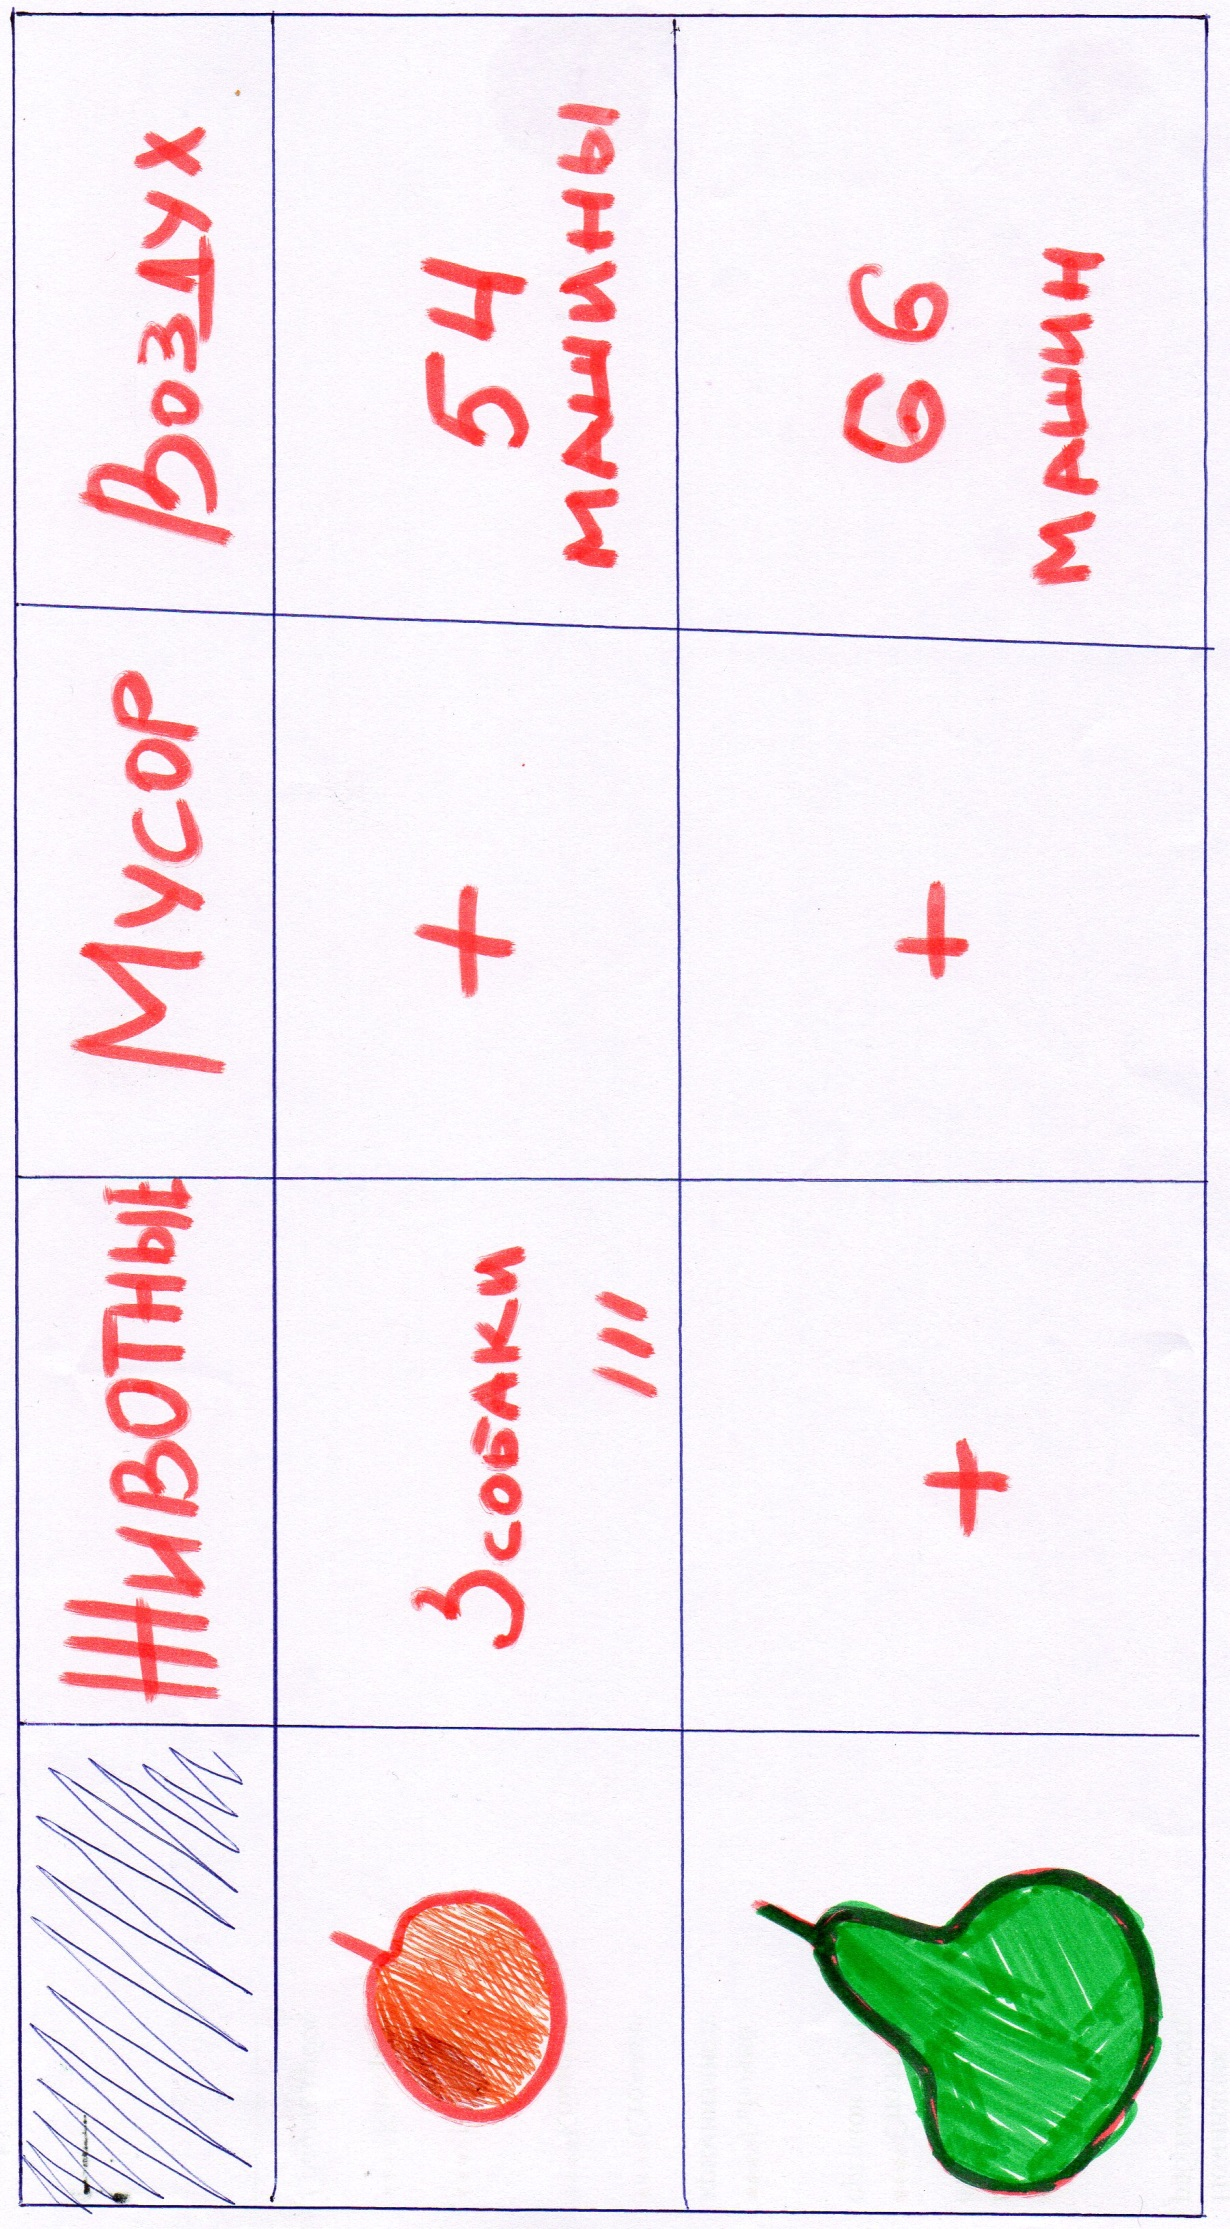 ЖИВОТНЫЕ
МУСОР
ВОЗДУХ
3 СОБАКИ
///
+
54
МАШИНЫ
+
+
66
МАШИН